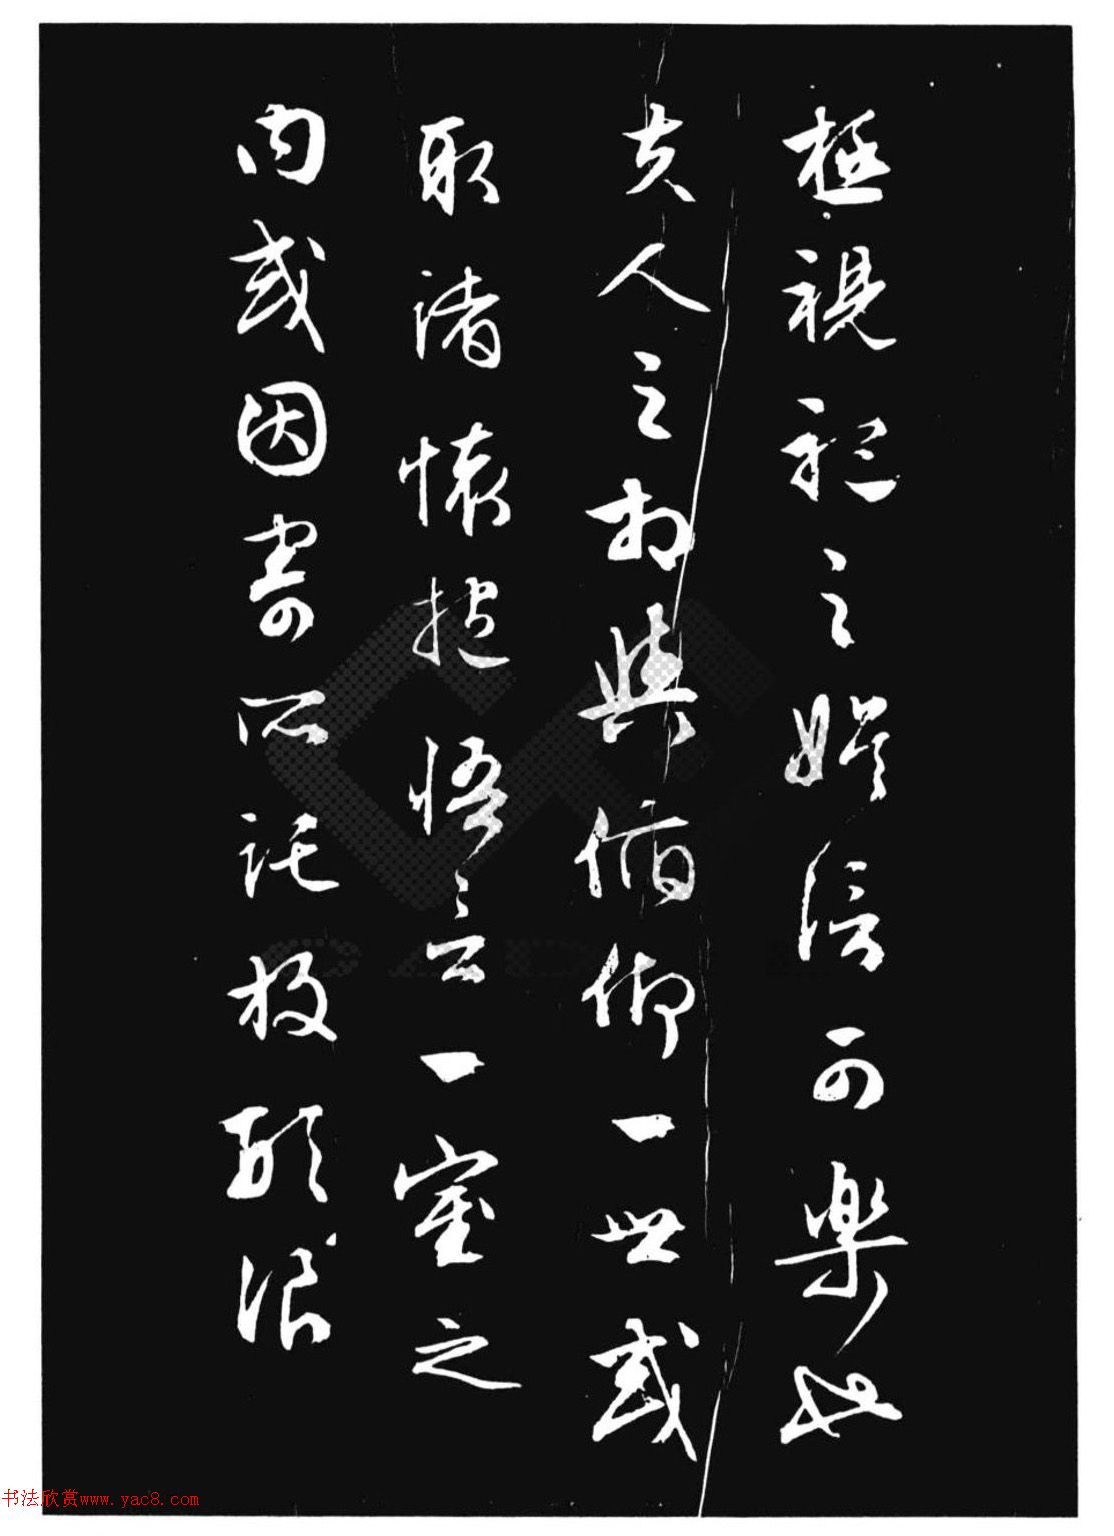 極視聽之娛信可樂也
夫人之相與俯仰一世或
取諸懷抱悟言一室之
內或因寄所託放形浪
书法欣赏www.yac8.com